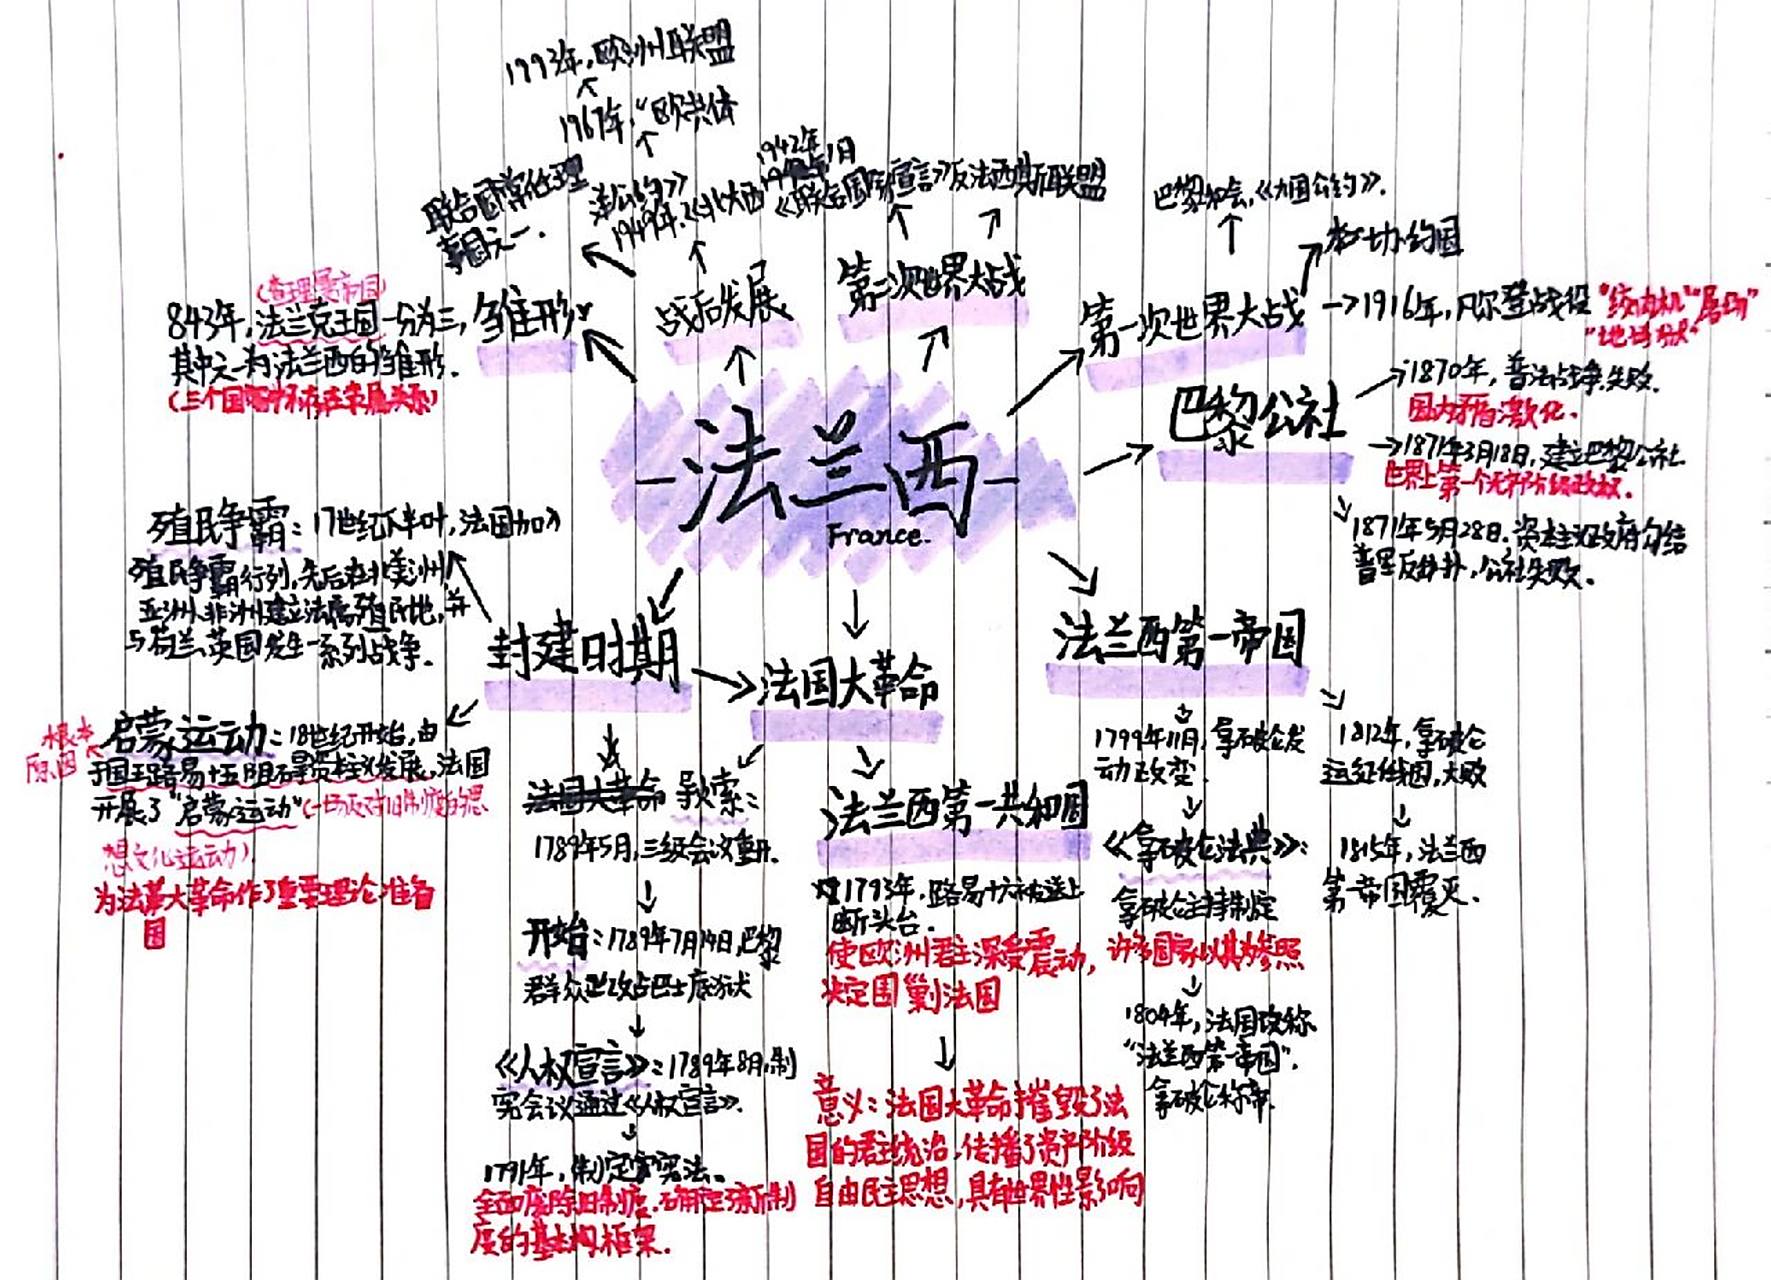 1993年,欧洲州联盟
1967年,“欧共体
联合国常任理
事国之一.
洋公约》
1949年,《北大西
1942年
1月
《联合国家宣言》反法西斯联盟
巴黎和会,《九国公约》.
协约国
(查理曼帝国)
843年,法兰克王国一分为三,
其中之一为法兰西的雏形.
雏形
战后发展
第二次世界大战
第一次世界大战
→1916年,凡尔登战役“绞肉机”“屠场”
“地狱”
巴黎公社
1870年,普法战争,失败.
国内矛盾激化.
→1871年3月18日,建立巴黎公社
世界上第一个无产阶级政权.
1871年5月28日.资本主义政府勾结
普军反扑,公社失败.
法兰西
France.
殖民争霸:17世纪下半叶,法国加入
殖民争霸行列,先后在北美洲
亚洲、非洲建立法属殖民地,并
与荷兰、英国发生一系列战争.
封建时期
法国大革命
法兰西第一帝国
根本
原因
启蒙运动:18世纪开始,由
于国王路易十五阻碍资本主义发展,法国
开展了“启蒙运动”(一场反对旧制度的思
想文化运动).
为法革大革命作了重要理论准备
国
法国大革命 导火索:
1789年5月,三级会议重开.
开始:1789年7月14日,巴黎
群众攻占巴士底狱
《人权宣言》:1789年8月,制
宪会议通过《人权宣言》.
1791年,制定宪法.
全面废除旧制度.确定了新制
度的基本构框架.
法兰西第一共和国
1793年,路易十六被送上
断头台.
使欧洲君主深受震动,
决定围剿法国
意义:法国大革命摧毁了法
国的君主统治,传播了资产阶级
自由民主思想,具有世界性影响
1799年11月,拿破仑发
动政变.
《拿破仑法典》:
拿破仑主持制定
许多国家以其为参照
1804年,法国改称
“法兰西第一帝国”.
拿破仑称帝.
1812年,拿破仑
远征俄国,大败
1815年,法兰西
第一帝国覆灭.